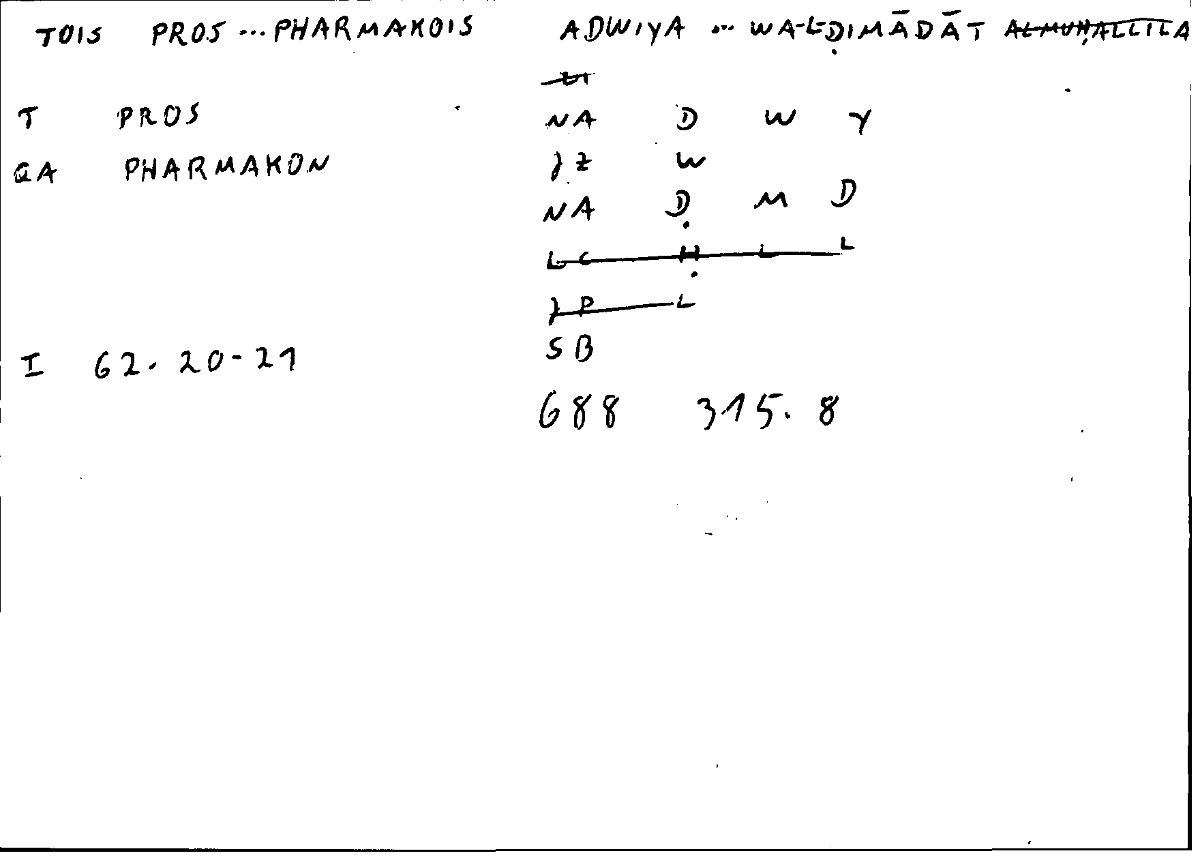 TOIS PROS ... PHARMAKOIS ADWIYA ... WA-L-ḌIMĀDĀT ALMUḤALLILA
T PROS NA D W Y
QA PHARMAKON } Z W
NA Ḍ M D
L C Ḥ L L
} P L
I 62. 20-21 SB
688 315. 8